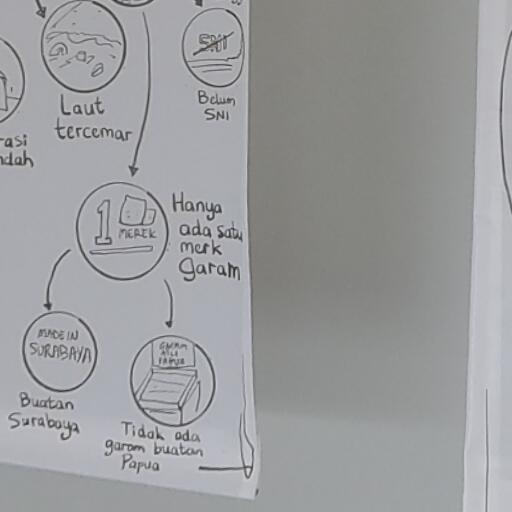 SNI
Belum
SNI
Laut
tercemar
asi
dah
1
MEREK
Hanya
ada satu
merk
garam
MADE IN
SURABAYA
Buatan
Surabaya
GARAM
ASLI
PAPUA
Tidak ada
garam buatan
Papua